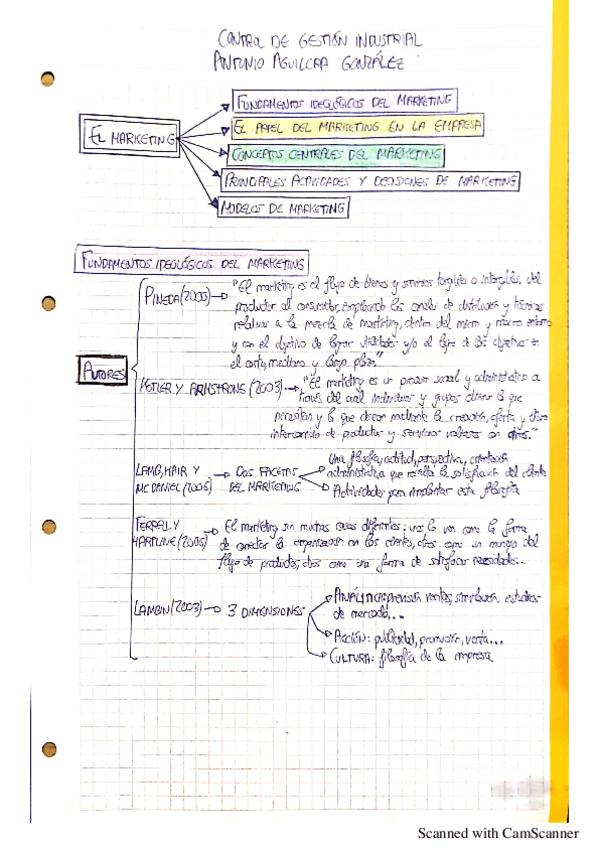 CONTROL DE GESTIÓN INDUSTRIAL
ANTONIO AGUILERA GONZÁLEZ
EL MARKETING
FUNDAMENTOS IDEOLÓGICOS DEL MARKETING
EL PAPEL DEL MARKETING EN LA EMPRESA
CONCEPTOS CENTRALES DEL MARKETING
PRINCIPALES ACTIVIDADES Y DECISIONES DE MARKETING
MODELOS DE MARKETING
FUNDAMENTOS IDEOLÓGICOS DEL MARKETING
AUTORES
PINEDA (2005) → "El marketing es el flujo de bienes y servicios tangibles o intangibles, del
productor al consumidor, empleando los canales de distribución y técnicas
relativas a la mezcla de marketing, dentro del micro y macro entorno
y con el objetivo de lograr utilidades y/o el logro de los objetivos en
el corto, mediano y largo plazo."
KOTLER Y ARMSTRONG (2003) → "El marketing es un proceso social y administrativo a
través del cual individuos y grupos obtienen lo que
necesitan y lo que desean mediante la creación, oferta y libre
intercambio de productos y servicios valiosos con otros."
LAMB, HAIR Y
MCDANIEL (2006) → DOS FACETAS
DEL MARKETING
Una filosofía, actitud, perspectiva, orientación
administrativa que resalta la satisfacción del cliente
Actividades para implantar esta filosofía
FERREL Y
HARTLINE (2006) → El marketing son muchas cosas diferentes: unos lo ven como la forma
de conectar la organización con los clientes, otros como un manejo del
flujo de productos, otros como una forma de satisfacer necesidades...
LAMBIN (2003) → 3 DIMENSIONES
ANÁLITICA: previsión ventas, simulación, estudios
de mercado,...
ACCIÓN: publicidad, promoción, venta...
CULTURA: filosofía de la empresa
Scanned with CamScanner